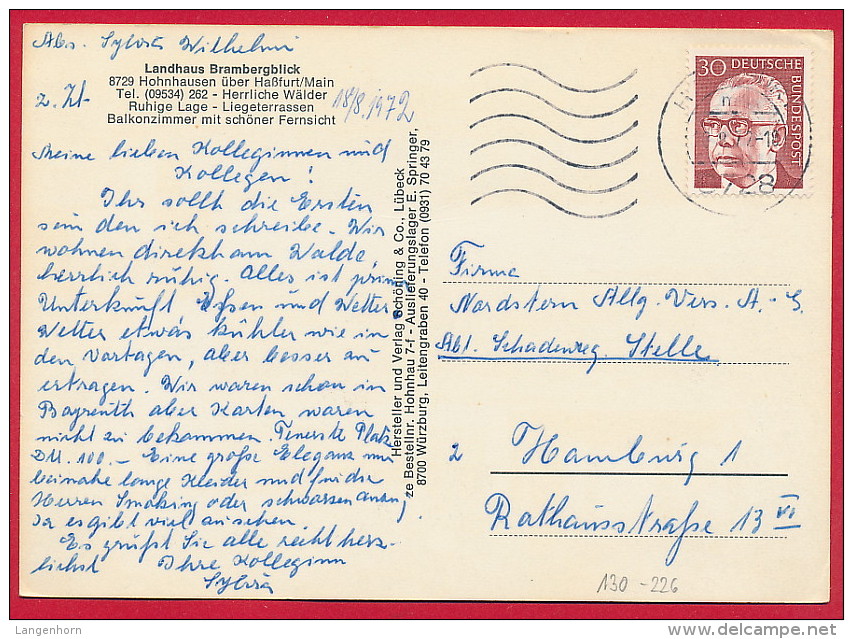 Abs. Sylvia Wilhelmi
Landhaus Brambergblick
8729 Hohnhausen über Haßfurt/Main
Tel. (09534) 262 - Herrliche Wälder
Ruhige Lage - Liegeterrassen
Balkonzimmer mit schöner Fernsicht
z. Zt.
18/8.1972
Meine lieben Kolleginnen und
Kollegen!
Ihr sollt die Ersten
sein den ich schreibe. Wir
wohnen direkt am Walde,
herrlich ruhig. Alles ist prima
Unterkunft Essen und Wetter.
Wetter etwas kühler wie in
den Vortagen, aber besser zu
ertragen. Wir waren schon in
Bayreuth aber Karten waren
nicht zu bekommen. Teuerste Platz
DM. 100.- Eine große Eleganz nur
beinahe lange Kleider und für die
Herren Smoking oder schwarzen Anzug,
Ja es gibt viel an sehen.
Es grüßt Sie alle recht herz-
lichst Ihre Kollegin
Sylvia
Hersteller und Verlag Schöning & Co., Lübeck
Bestellnr. Hohnhau 7-f - Auslieferungslager E. Springer,
8700 Würzburg, Leitengraben 40 - Telefon (0931) 70 43 79
30 DEUTSCHE
BUNDESPOST
8728
Firma
Nordstern Allg. Vers. A.-G.
Abt. Schadenreg. Stelle
2 Hamburg 1
Rathausstraße 13 VI
130-226
© Langenhorn
delcampe.net